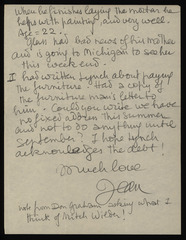 When he finishes laying the mortar he
helps with painting, and very well.
Age = 22.
Glenn had bad news of his mother
and is going to Michigan to see her
this week end.
I had written Lynch about paying
the furniture. Had a copy of
the furniture man's letter to
him. Could you write we have
no fixed address this summer
and not to do anything until
September? I hope Lynch
acknowledges the debt!
Much love
Jean
note from Don Graham asking what I
think of Mitch Wilder!